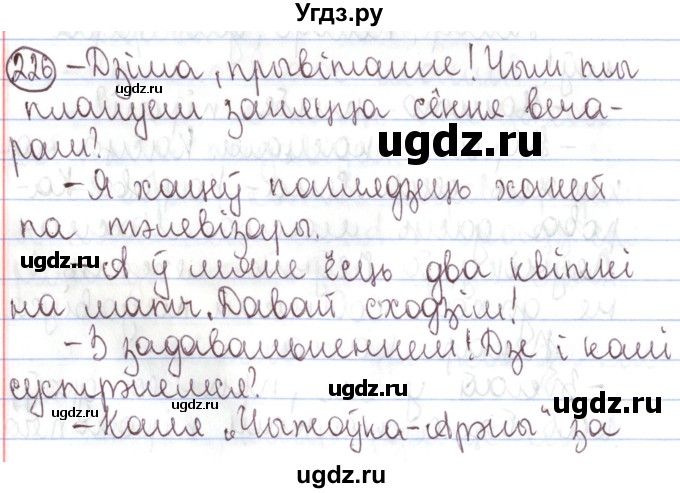 Угдз.ру
226 – Дзіма, прывітанне! Чым ты
плануеш заняцца сёння веча-
рам?
– Я хацеў паглядзець хакей
па тэлевізары.
– А ў мяне ёсць два квіткі
на матч. Давай сходзім!
– З задавальненнем! Дзе і калі
сустрэнемся?
– Каля „Чыжоўка-Арэны“ за
ugdz.ru
ugdz.ru
ugdz.ru
ugdz.ru
ugdz.ru
ugdz.ru
ugdz.ru
ugdz.ru
ugdz.ru